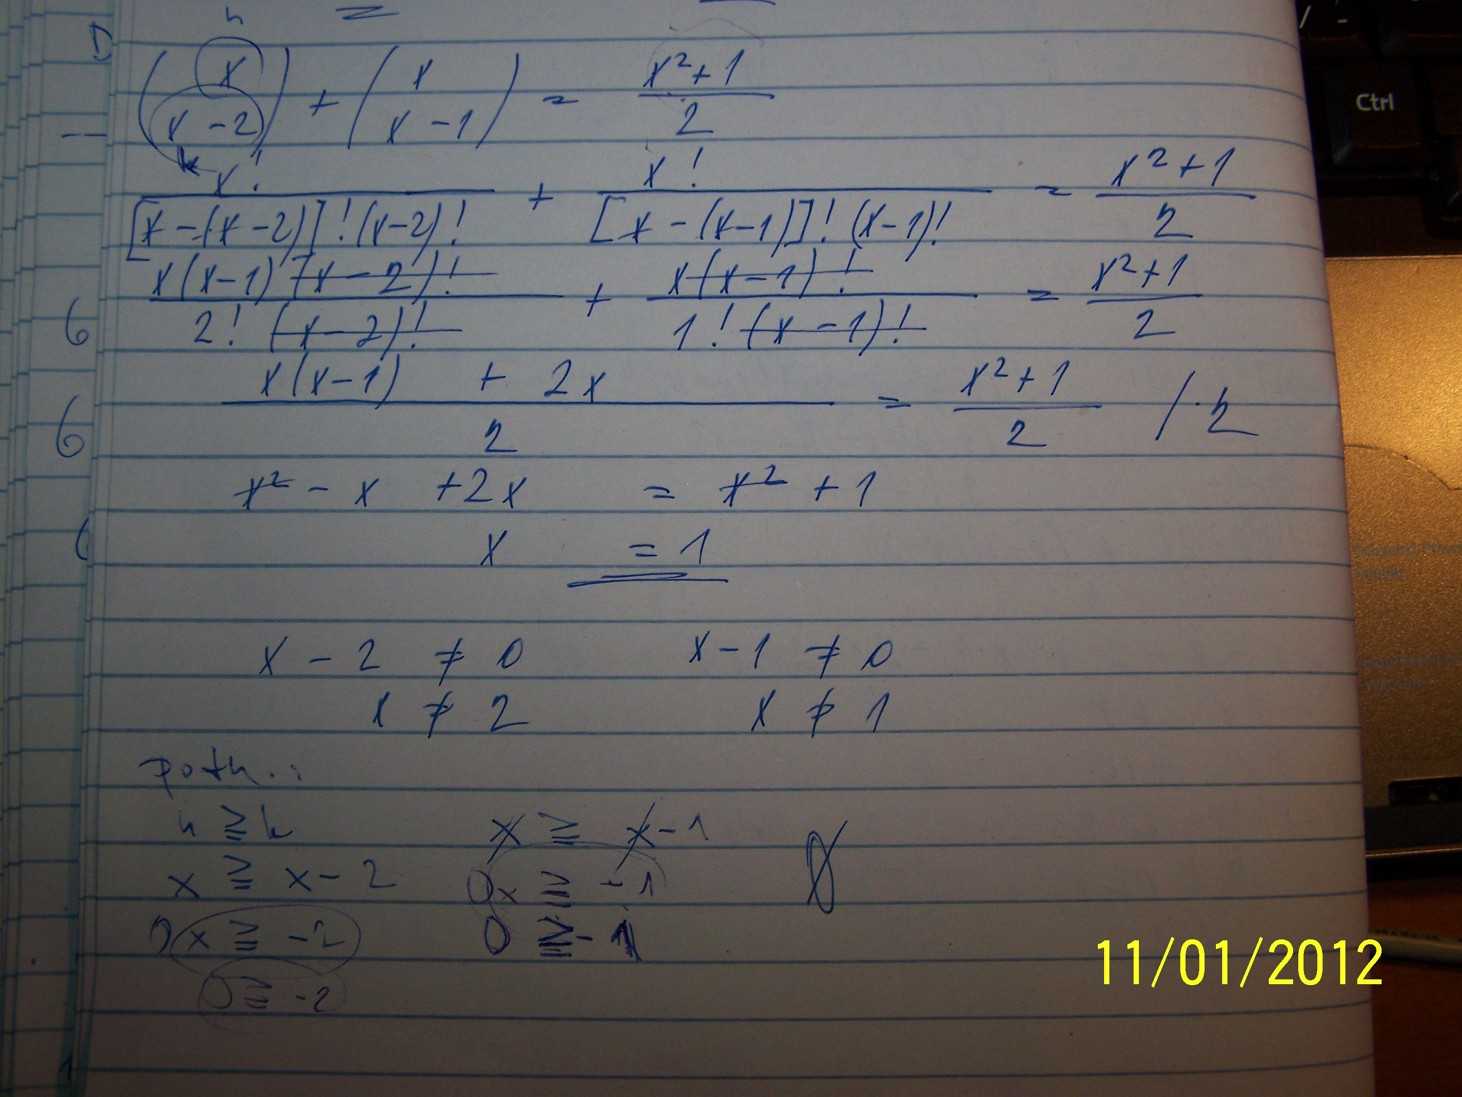 n
D
(x x-2) + (x x-1) = (x²+1)/2
k
x!/([x-(x-2)]!(x-2)!) + x!/([x-(x-1)]!(x-1)!) = (x²+1)/2
x(x-1)(x-2)!/(2!(x-2)!) + x(x-1)!/(1!(x-1)!) = (x²+1)/2
6
(x(x-1) + 2x)/2 = (x²+1)/2 /·2
6
x² - x + 2x = x² + 1
x = 1
x - 2 ≠ 0 x - 1 ≠ 0
x ≠ 2 x ≠ 1
n ≧ k x ≧ x - 1
x ≧ x - 2 0x ≧ -1
0x ≧ -2 0 ≧ -1
0 ≧ -2
Ctrl
11/01/2012